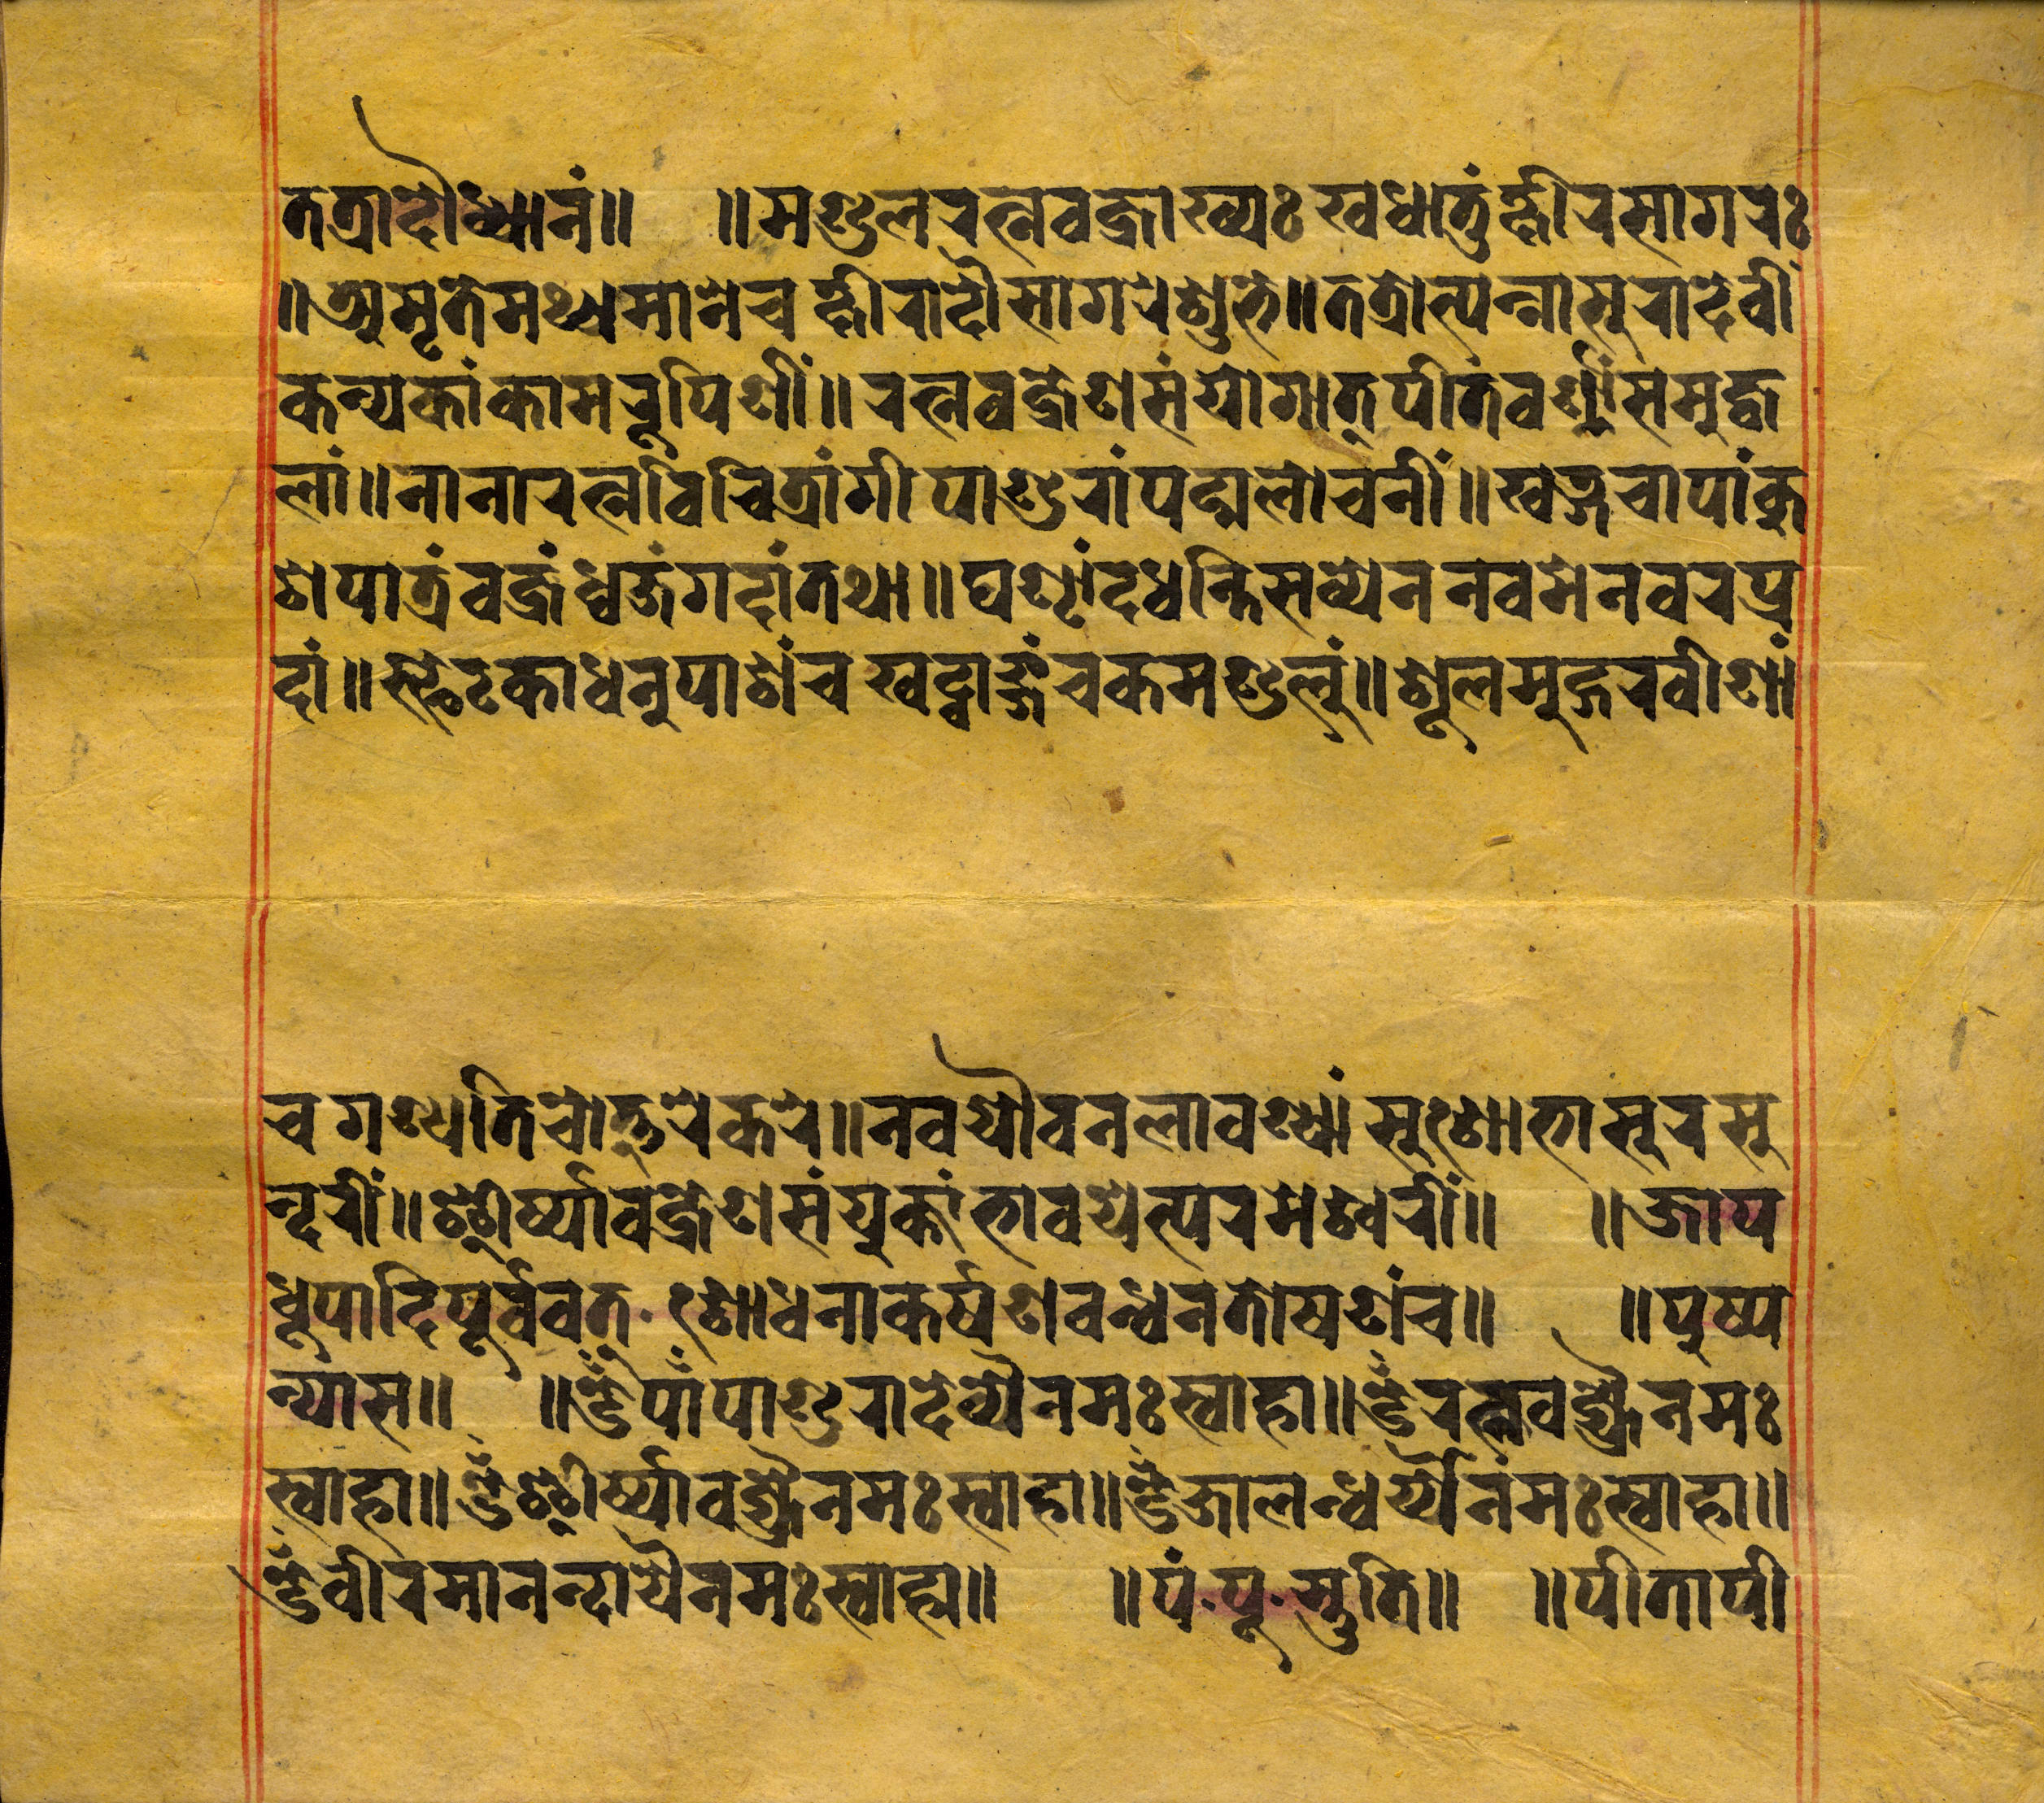 तत्रादौध्यानं॥ ॥मण्डलरत्नवज्राख्यः खधातुंक्षीरसागरः
॥अमृतेमथ्यमानेच क्षीराव्दौसागरेशुभे॥तत्रोत्पन्नासुरादेवीं
कन्यकांकामरूपिणीं॥रत्नवज्रेणसंयोगात्पीतवर्ण्णांसमुज्व
लां॥नानारत्नविचित्रांगी पाण्डुरांपद्मलोचनीं॥खड्गचापांकु
शपात्रंवज्रंध्वजंगदांतथा॥घण्टांदधन्तिसव्येन नवमेनवरप्र
दां॥स्फेटकाधनुपाशंच खट्वाङ्गंचकमण्डलुं॥शूलमुद्गरवीणां
च गण्यतिचोत्तरेकरे॥नवयौवनलावण्यां सुशोभासुरसु
न्दरीं॥ईर्ष्यावज्रेणसंयुक्तांभावयेत्परमेश्वरीं॥ ॥जाप
धूपादिपूर्ववत्·शोधनाकर्षणवन्धनतोषणंच॥ ॥पुष्प
न्यास॥ ॥ॐपाँपाण्डुरादेव्यैनमःस्वाहा॥ॐरत्नवज्र्यैनमः
स्वाहा॥ॐईर्ष्यावज्र्यैनमःस्वाहा॥ॐजालन्धर्य्यैनमःस्वाहा॥
ॐवीरमानन्दायैनमःस्वाहा॥ ॥पं·पू·स्तुति॥ ॥पीतापी